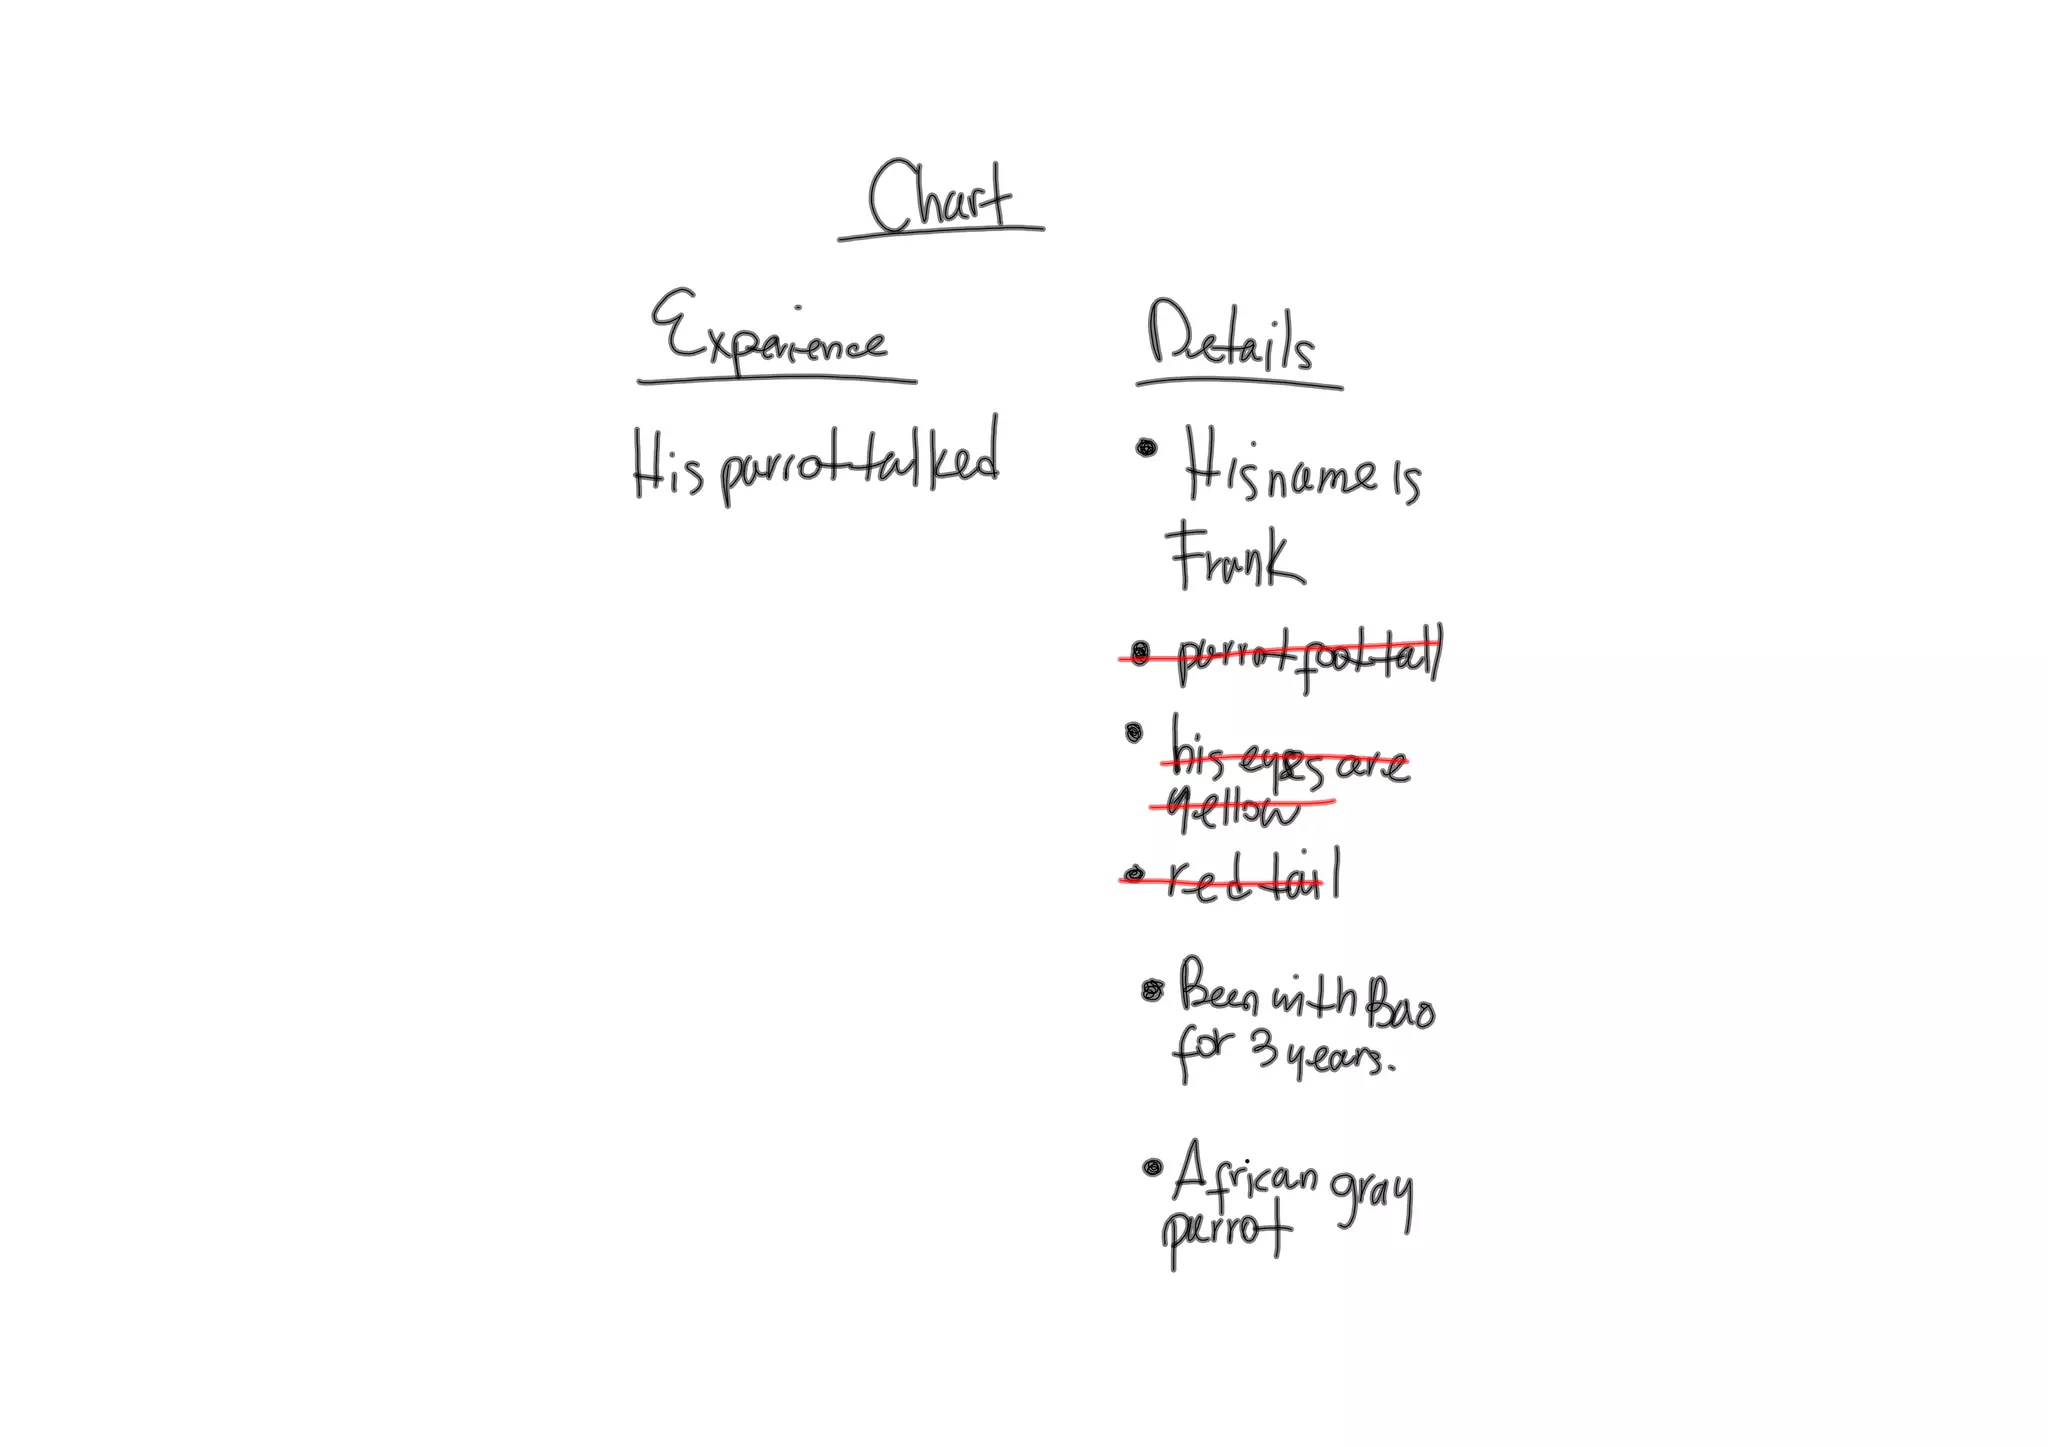 Chart
Experience
Details
His parrot talked
• His name is
Frank
• parrot foot tall
• his eyes are
yellow
• red tail
• Been with Bao
for 3 years.
• African gray
parrot